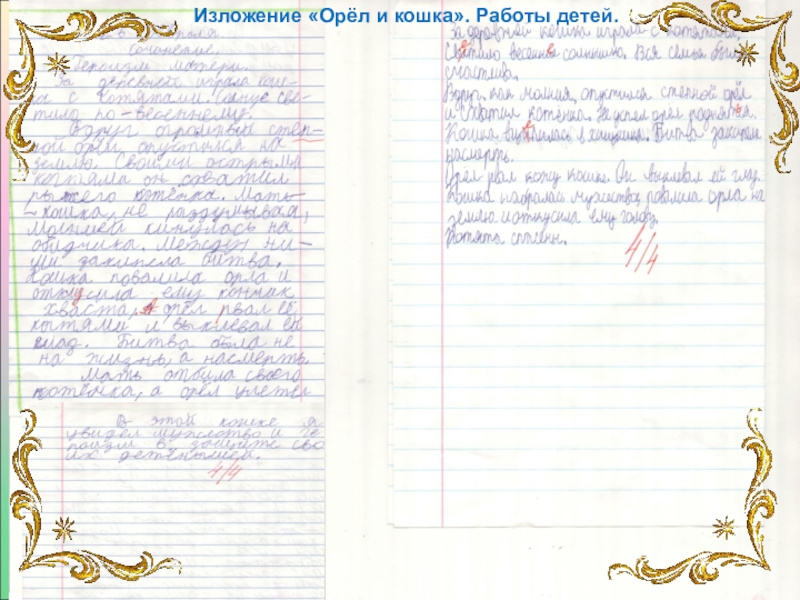 Изложение «Орёл и кошка». Работы детей.
Сочинение.
Героизм матери.
За деревней играла кош-
ка с котятами. Солнце све-
тило по-весеннему.
Вдруг огромный степ-
ной орёл опустился на
землю. Своими острыми
когтями он схватил
рыжего котёнка. Мать-
-кошка, не раздумывая,
молнией кинулась на
обидчика. Между ни-
ми закипела битва.
Кошка повалила орла и
откусила ему кончик
хваста, а орёл рвал её
когтями и выклевал ей
глаз. Битва была не
на жизнь, а насмерть.
Мать отбила своего
котёнка, а орёл улетел
В этой кошке я
увидел мужество и ге-
роизм в защите сво
их детёнышей.
4/4
За деревней кошка играла с котятами.
Светило весеннее солнышко. Вся семья была
счастлива.
Вдруг, как молния, опустился степной орёл
и схватил котёнка. Не успел орёл подняться.
Кошка вцепилась в хищника. Битва закипела
насмерть.
Орёл рвал кожу кошке. Он выклевал ей глаз.
Кошка набралась мужества, повалила орла на
землю и откусила ему голову.
Котята спасены.
4/4